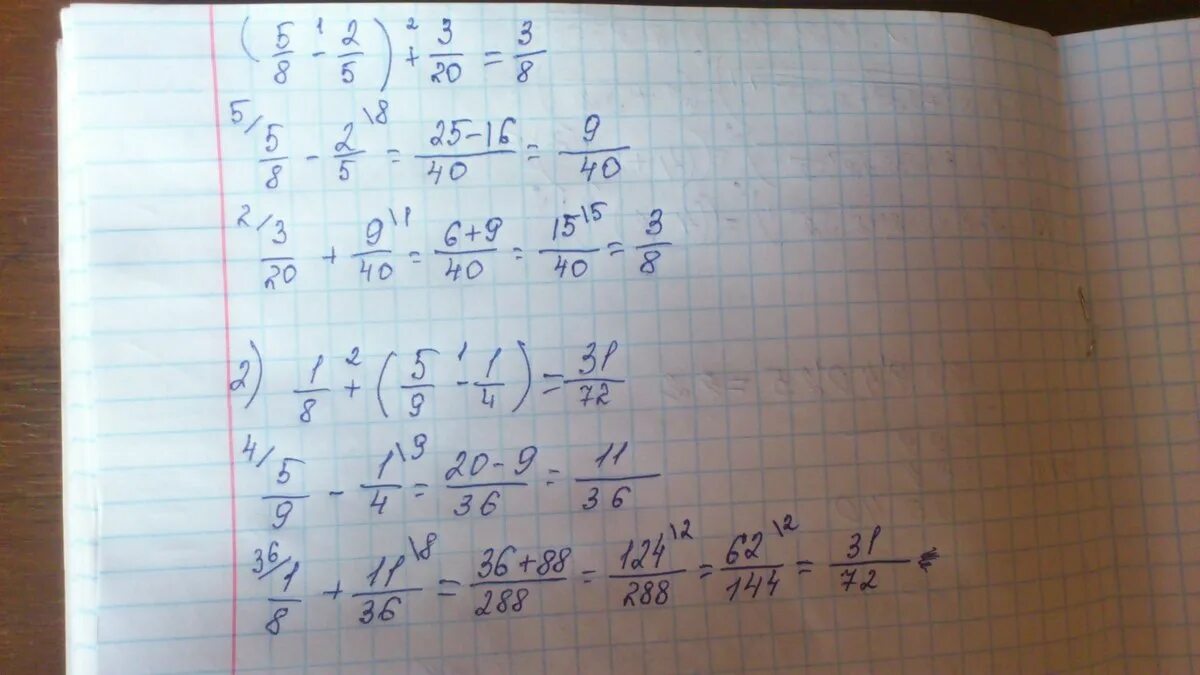 (5/8 -¹ 2/5) +² 3/20 = 3/8
5/ 5/8 - 2/5 \8 = 25-16/40 = 9/40
2/ 3/20 + 9/40 \1 = 6+9/40 = 15/40 \5 = 3/8
2) 1/8 +² (5/9 -¹ 1/4) = 31/72
4/ 5/9 - 1/4 \9 = 20-9/36 = 11/36
36/ 1/8 + 11/36 \8 = 36+88/288 = 124/288 \2 = 62/144 \2 = 31/72